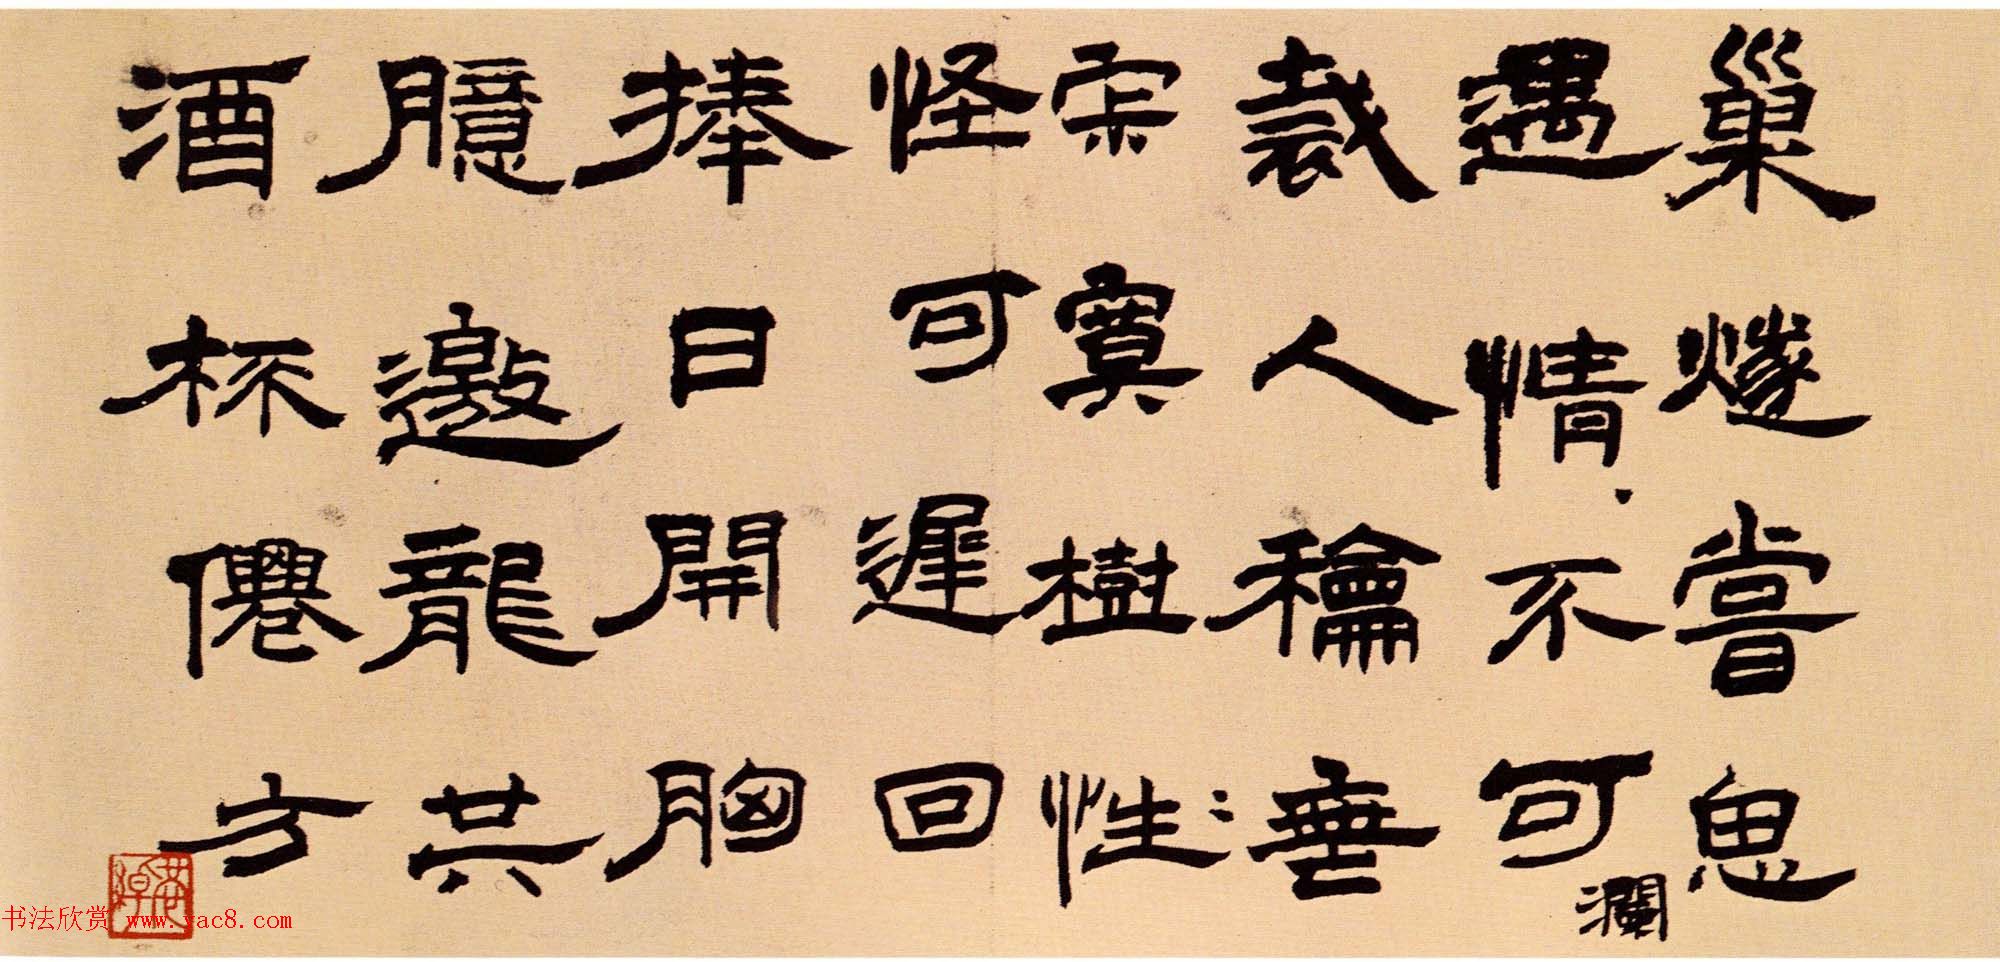 巢燧嘗思
遇情不可
瀾
裁人龢垂
宋寞樹性
怪可遲回
捧日開胸
臆邀龍共
酒杯僊方
书法欣赏 www.yac8.com